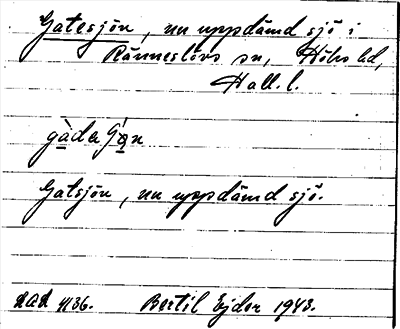 Gatesjön, nu uppdämd sjö i
Ränneslövs sn, Höks hd,
Hall. l.
Gatsjön, nu uppdämd sjö.
4136. Bertil Ejder 1943.